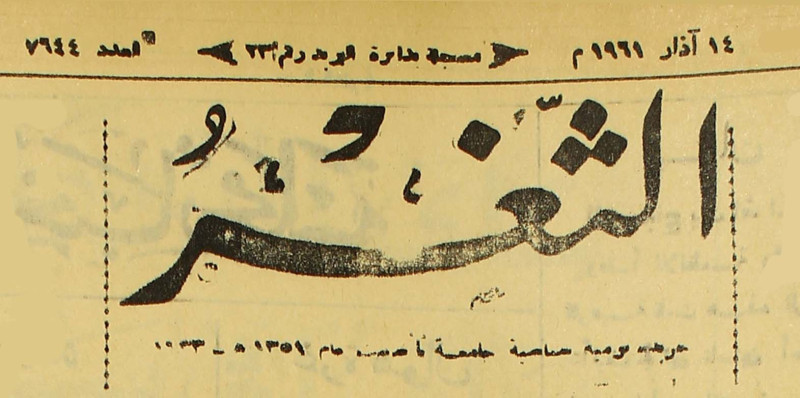 ١٤ آذار ١٩٦١ م مسجلة بدائرة البريد رقم ٢٣ العدد ٧٦٤٤
الثَّغْرُ
جريدة يومية سياسية جامعة تأسست عام ١٣٥١ ه - ١٩٣٣